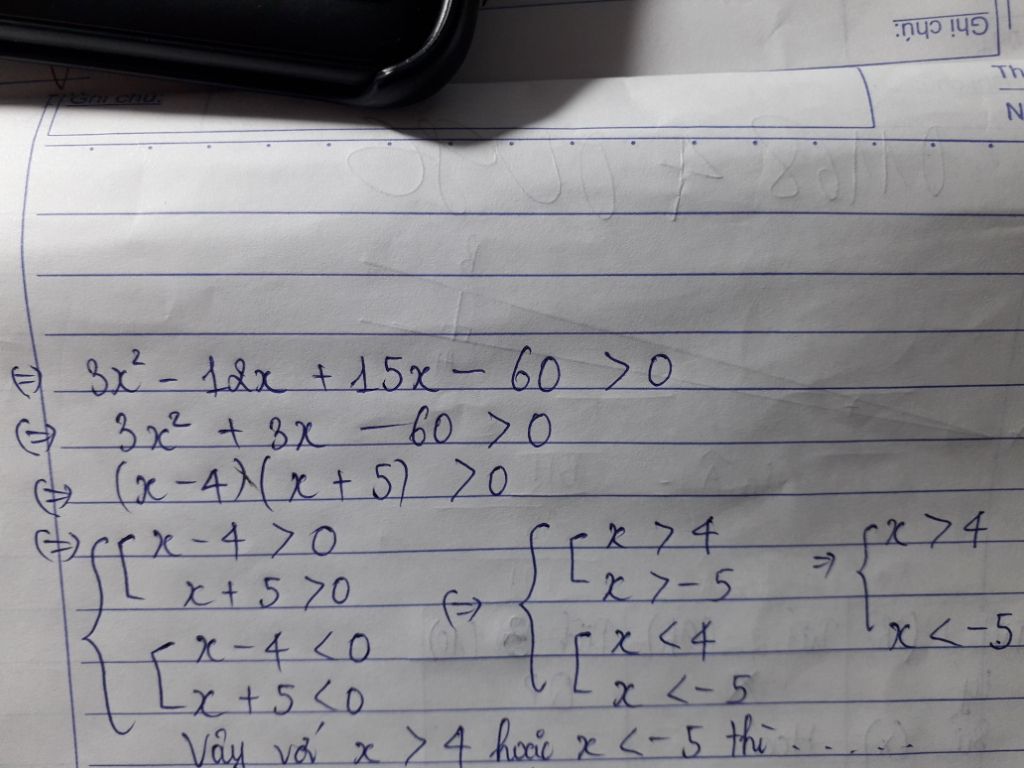 Ghi chú:
Th
Ghi chú:
N
⇔ 3x² - 12x + 15x - 60 > 0
⇔ 3x² + 3x - 60 > 0
⇔ (x - 4)(x + 5) > 0
⇔ { [ x - 4 > 0 ⇔ { [ x > 4 ⇒ { x > 4
x + 5 > 0 x > -5
[ x - 4 < 0 [ x < 4 x < -5
x + 5 < 0 x < -5
Vậy với x > 4 hoặc x < -5 thì . . . . .